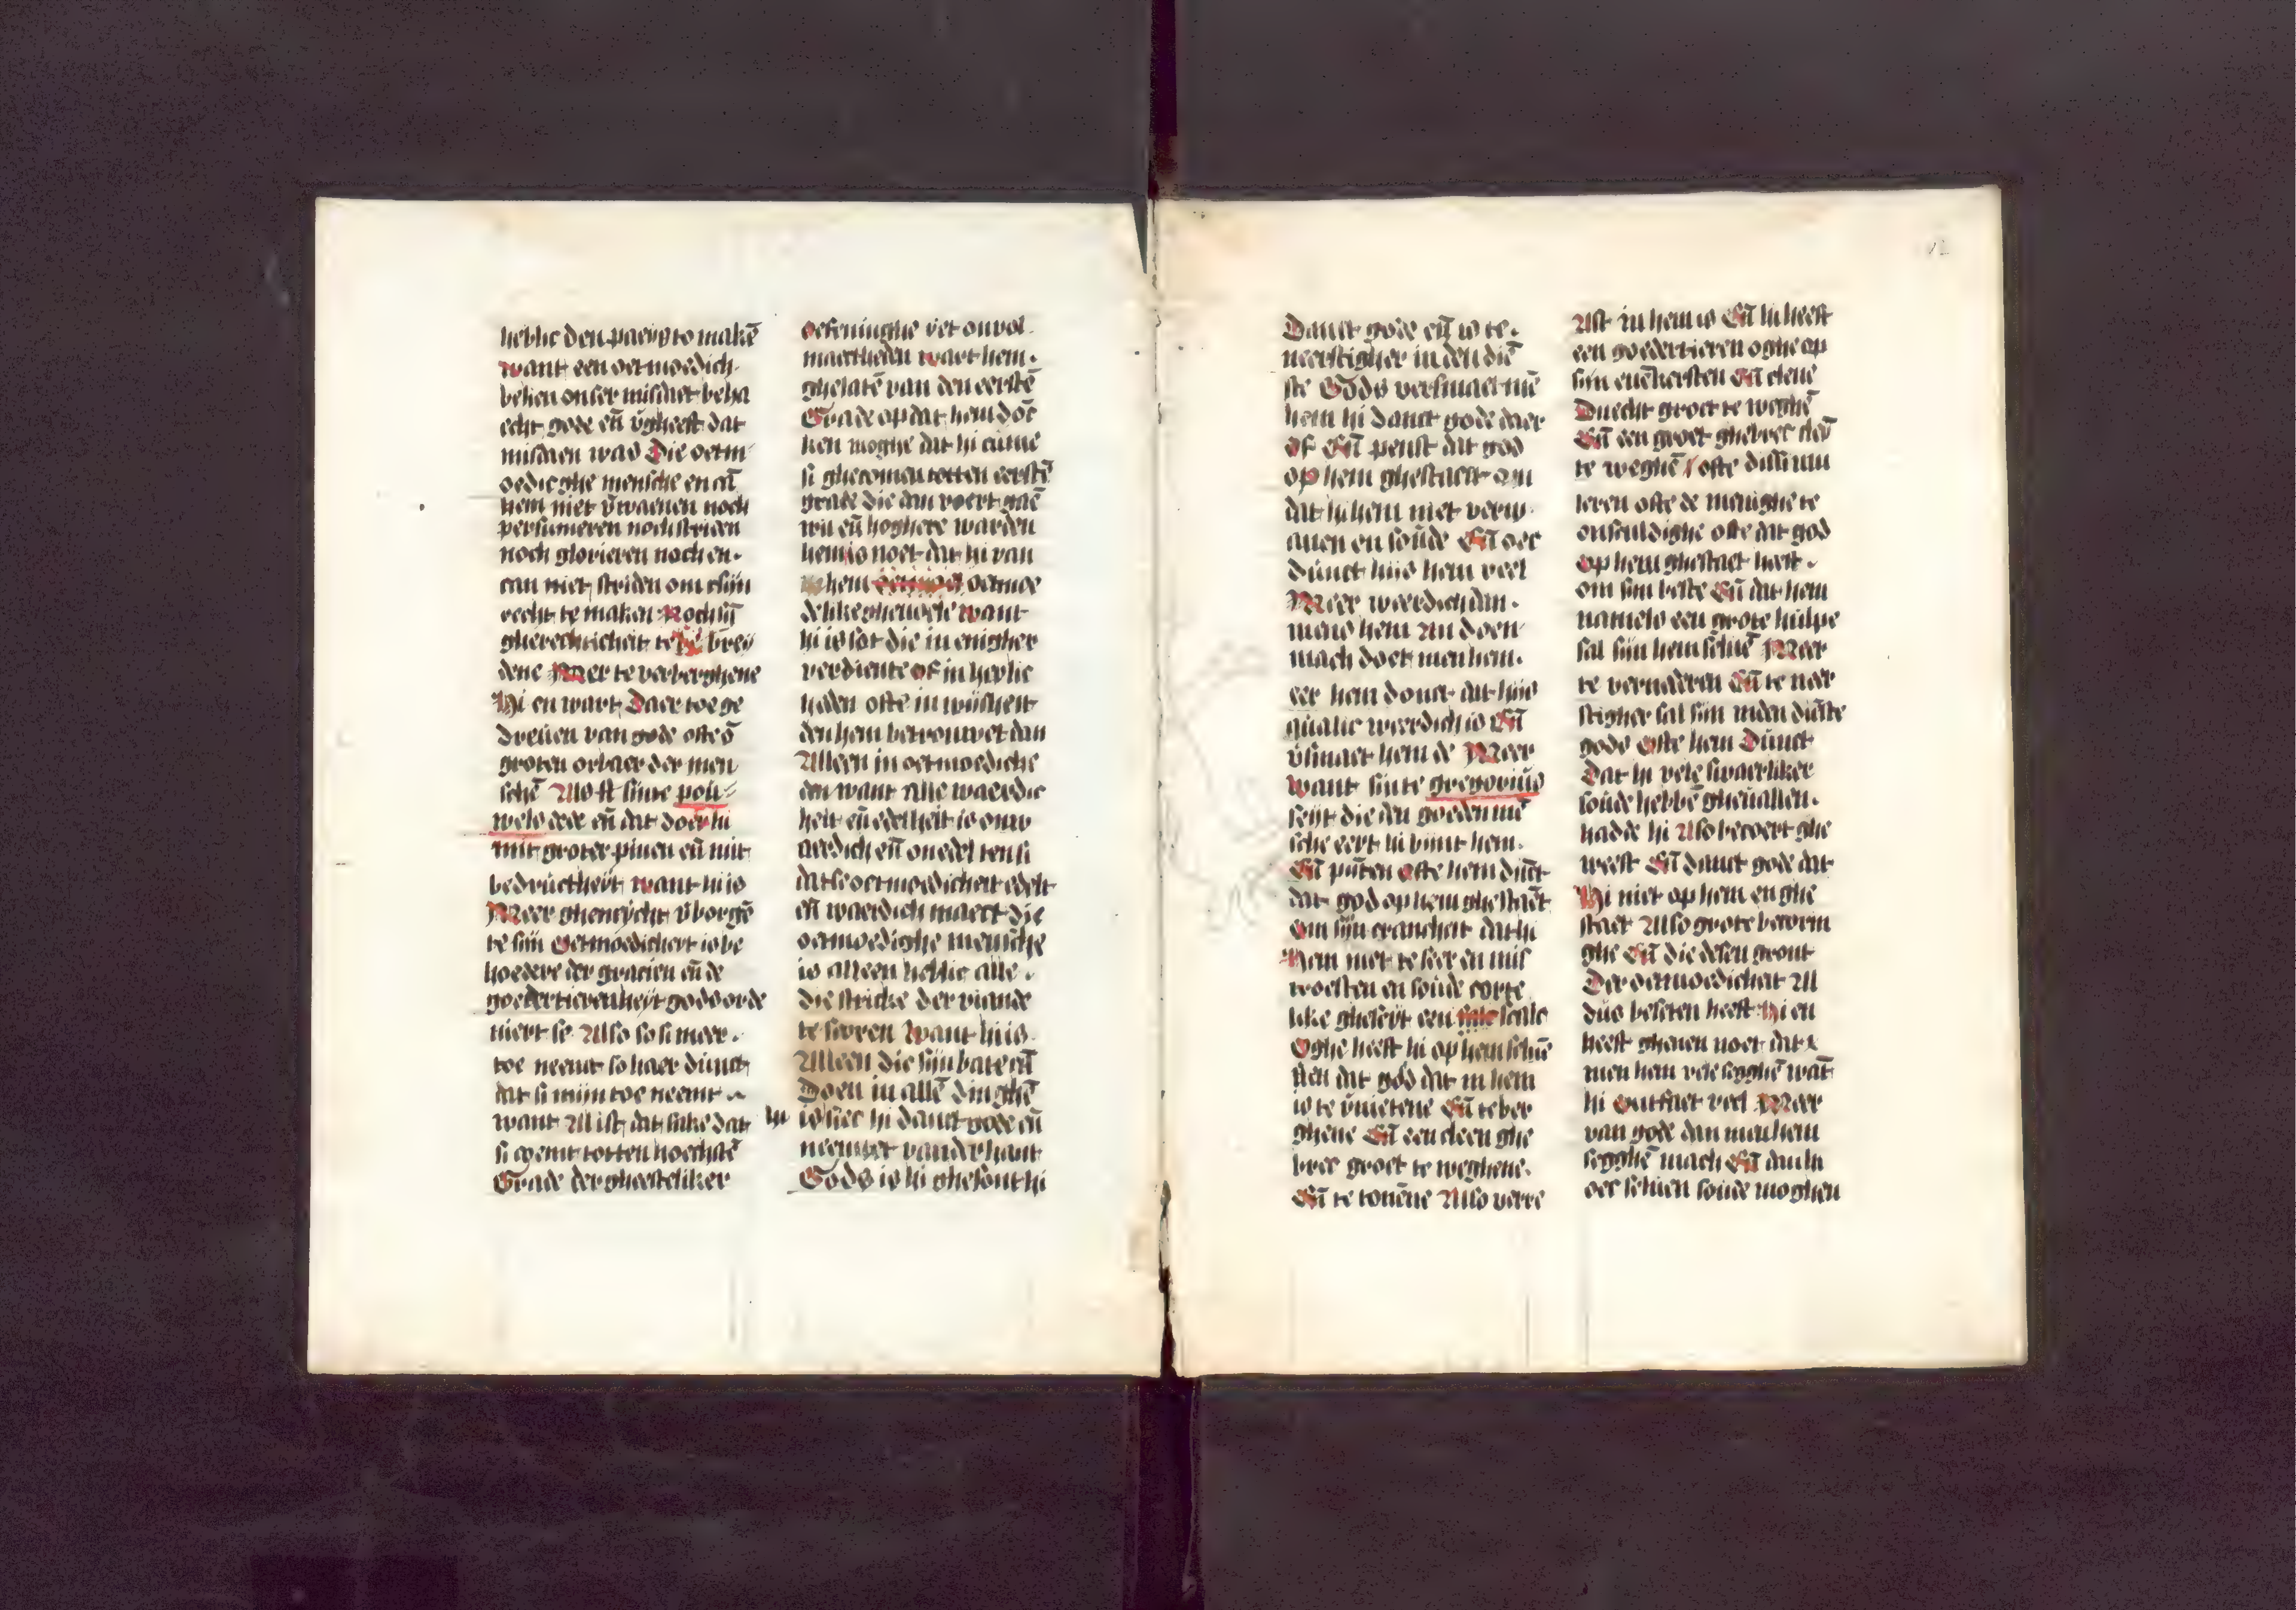 heblic den paeys to makē
want een oetmoedich
belien onser misdaet beha
echt gode eñ v̄gheeft dat
misdaen was Die oetm
oedieghe mensche en cā
hem niet v̄waenen noch
persumeren noch striden
noch glorieren noch en
can niet striden om tsijn
recht te maken Noch sijn
gherechticheit te brey
dene Meer te verberghene
Hi en wart Daer toe ge
dreuen van gode ofte ō
groten orbaer der men
schē Also st sinte pou
wels dede eñ dat doet hi
mit groter pinen eñ mit
bedructheyt want hi is
Meer ghencycht v̄borgē
te sijn Oetmoedicheit is be
hoedere der gracien eñ de
goedertierenheyt gods orde
niert se Also so si meer
toe neemt so haer dunct
dat si mijn toe neemt
want Al ist dat sake dat
si coemt totten hoechstē
Grade der gheesteliker
oefeninghe der onvol
maectheden wart hem
ghelatē van den eerstē
Grade op dat hem doē
ken moghe dat hi cume
si ghecomen totten eerstē
grade die dan voert gaē
wil eñ hoghere warden
hem is noet dat hi van
hem oetmoe
delike ghevoele want
hi is sot die in enigher
verdiente of in heylic
heden ofte in wijsheit
den hem betrouwet dan
Alleen in oetmoediche
den want Alle waerdic
heit eñ edelheit is onw
aerdich eñ onedel ten si
datse oetmoedicheit edelt
eñ waerdich maect die
oetmoedighe mensche
is alleen heblic alle
die stricke der viande
te scoren want hi is
Alleen die sijn bate cā
Doen in allē dinghē
hi is siec hi danct gode eñ
neemvet vander hant
Gods is hi ghesont hi
Danct gode eñ is te
neerstigher in den diē
ste Gods versmaet mē
hem hi danct gode daer
of Eñ penst dat god
op hem ghestaect om
dat hi hem niet verw
anen en soude Eñ oec
dunct hijs hem veel
Meer weerdich dan
mens hem An doen
mach doet men hem
eer hem donct dat hijs
qualic weerdich is Eñ
v̄smaet hem de Meer
want sinte gregorius
seyt die den goeden mē
sche eert hi pinet hem
Eñ puten ofte hem dūct
dat god op hem ghestaet
om sijn crancheit dat hi
Hem niet te seer en mis
troesten en soude corte
like gheseyt een scalc
Oghe heeft hi op hem selue
sien dat god dat in hem
is te v̄nietene Eñ te ber
ghene Eñ een cleen ghe
brec groet te weghene
Eñ te tonene Also verre
Alst in hem is Eñ hi heeft
een goedertieren oghe op
sijn euēkersten Eñ clene
Duecht groet te weghē
Eñ een groet ghebrec clei
te weghē / ofte dissimu
leren ofte de meninghe te
onsculdighe ofte dat god
op hem ghestaet heeft
om sijn beste Eñ dat hem
namels een grote hulpe
sal sijn hem seluē Meer
te vernaderen Eñ te neer
stigher sal sijn inden diēste
gods ofte hem Dunct
Dat hi vele swaerliker
soude hebbē gheuallen
hadde hi Also becoert ghe
weest Eñ danct gode dat
Hi niet op hem en ghe
staet Also grote becorin
ghe Eñ die desen gront
Der oetmoedicheit Al
dus beseten heeft Hi en
heeft gheuen noet dat
men hem vele segghē wāt
hi ontfaet veel Meer
van gode dan men hem
segghē mach Eñ dan hi
oec selueu soude moghen